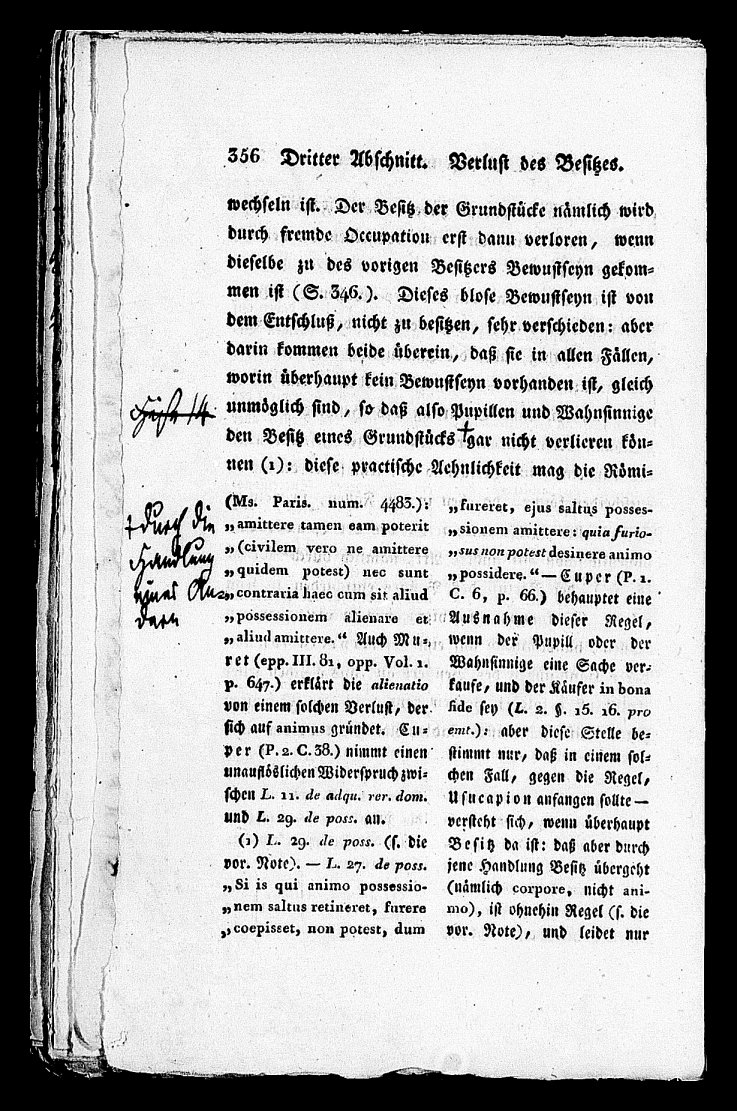 356 Dritter Abschnitt. Verlust des Besitzes.
wechseln ist. Der Besitz der Grundstücke nämlich wird
durch fremde Occupation erst dann verloren, wenn
dieselbe zu des vorigen Besitzers Bewustseyn gekom-
men ist (S. 346.). Dieses blose Bewustseyn ist von
dem Entschluß, nicht zu besitzen, sehr verschieden: aber
darin kommen beide überein, daß sie in allen Fällen,
worin überhaupt kein Bewustseyn vorhanden ist, gleich
unmöglich sind, so daß also Pupillen und Wahnsinnige
den Besitz eines Grundstücks + gar nicht verlieren kön-
nen (1): diese practische Aehnlichkeit mag die Römi-
+ durch die
Handlung
eines An-
dern
(Ms. Paris. num. 4483.):
„amittere tamen eam poterit
„(civilem vero ne amittere
„quidem potest) nec sunt
„contraria haec cum sit aliud
„possessionem alienare et
„aliud amittere.“ Auch Mu-
ret (epp. III. 81, opp. Vol. 1.
p. 647.) erklärt die alienatio
von einem solchen Verlust, der
sich auf animus gründet. Cu-
per (P. 2. C. 38.) nimmt einen
unauflöslichen Widerspruch zwi-
schen L. 11. de adqu. rer. dom.
und L. 29. de poss. an.
(1) L. 29. de poss. (s. die
vor. Note). — L. 27. de poss.
„Si is qui animo possessio-
„nem saltus retineret, furere
„coepisset, non potest, dum
„fureret, ejus saltus posses-
„sionem amittere: quia furio-
„sus non potest desinere animo
„possidere.“ — Cuper (P. 1.
C. 6, p. 66.) behauptet eine
Ausnahme dieser Regel,
wenn der Pupill oder der
Wahnsinnige eine Sache ver-
kaufe, und der Käufer in bona
fide sey (L. 2. §. 15. 16. pro
emt.): aber diese Stelle be-
stimmt nur, daß in einem sol-
chen Fall, gegen die Regel,
Usucapion anfangen sollte —
versteht sich, wenn überhaupt
Besitz da ist: daß aber durch
jene Handlung Besitz übergeht
(nämlich corpore, nicht ani-
mo), ist ohnehin Regel (s. die
vor. Note), und leidet nur